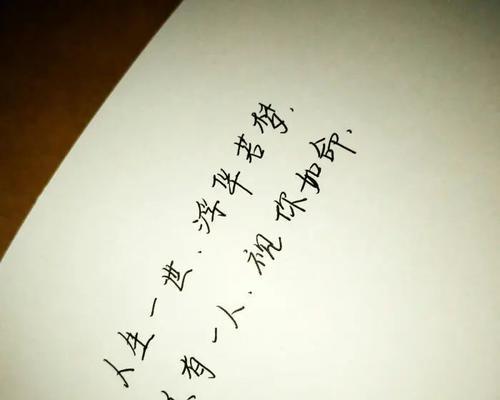 人生一世、浮华若梦、
有一人、视你如命、